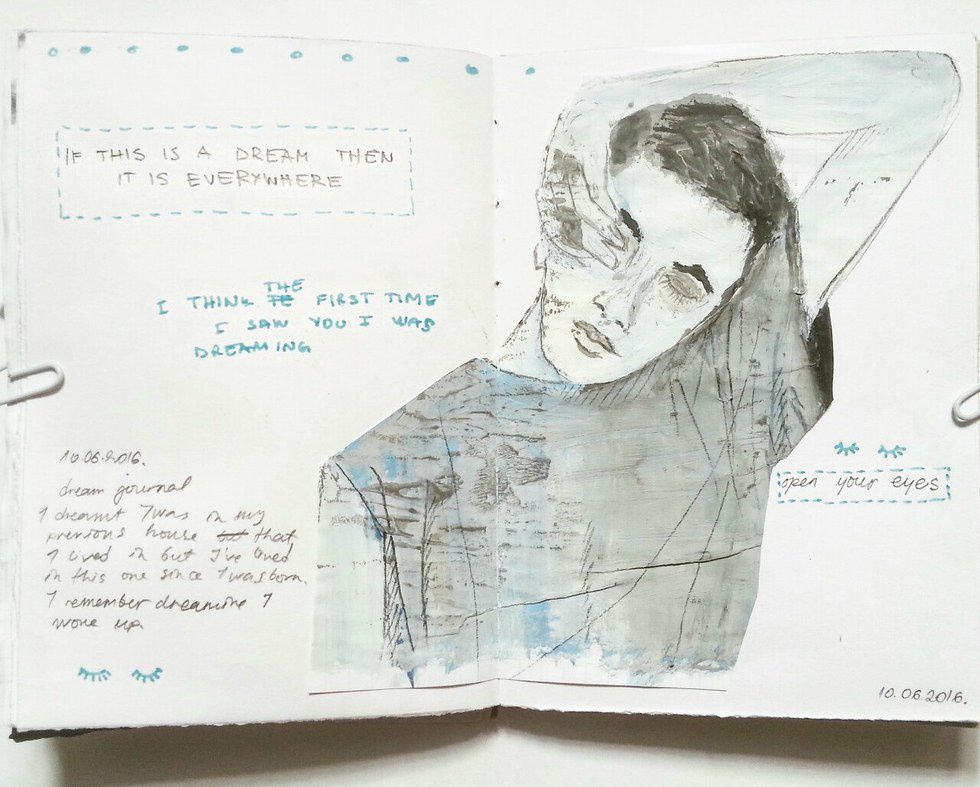 IF THIS IS A DREAM THEN
IT IS EVERYWHERE
THE
I THINK TE FIRST TIME
I SAW YOU I WAS
DREAMING
10.06.2016.
dream journal
I dreamt I was in my
previous house but that
I lived in but I've lived
in this one since I was born.
I remember dreaming I
woke up
open your eyes
10.06.2016.